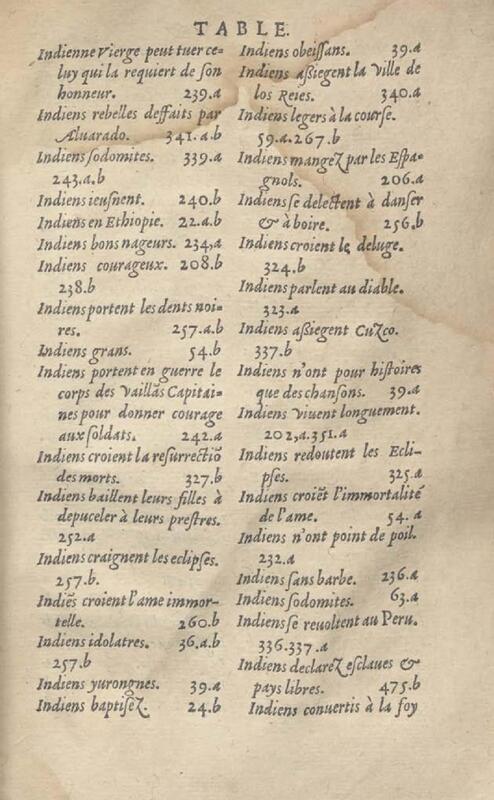 TABLE.
Indienne Vierge peut tuer ce-
luy qui la requiert de son
honneur. 239.a
Indiens rebelles deffaits par
Alvarado. 341.a.b
Indiens sodomites. 339.a
243.a.b
Indiens ieusnent. 240.b
Indiens en Ethiopie. 22.a.b
Indiens bons nageurs. 234,a
Indiens courageux. 208.b
238.b
Indiens portent les dents noi-
res. 257.a.b
Indiens grans. 54.b
Indiens portent en guerre le
corps des vaillãs Capitai-
nes pour donner courage
aux soldats. 242.a
Indiens croient la resurrectiõ
des morts. 327.b
Indiens baillent leurs filles à
depuceler à leurs prestres.
252.a
Indiens craignent les eclipses.
257.b.
Indiẽs croient l'ame immor-
telle. 260.b
Indiens idolatres. 36.a.b
257.b
Indiens yurongnes. 39.a
Indiens baptisez. 24.b
Indiens obeissans. 39.a
Indiens assiegent la ville de
los Reies. 340.a
Indiens legers à la course.
59.a.267.b
Indiens mangez par les Espa-
gnols. 206.a
Indiens se delectent à danser
& à boire. 256.b
Indiens croient le deluge.
324.b
Indiens parlent au diable.
323.a
Indiens assiegent Cuzco.
337.b
Indiens n'ont pour histoires
que des chansons. 39.a
Indiens viuent longuement.
202,a.351.a
Indiens redoutent les Ecli-
pses. 325.a
Indiens croiẽt l'immortalité
de l'ame. 54.a
Indiens n'ont point de poil.
232.a
Indiens sans barbe. 236.a
Indiens sodomites. 63.a
Indiens se reuoltent au Peru.
336.337.a
Indiens declarez esclaues &
pays libres. 475.b
Indiens conuertis à la foy